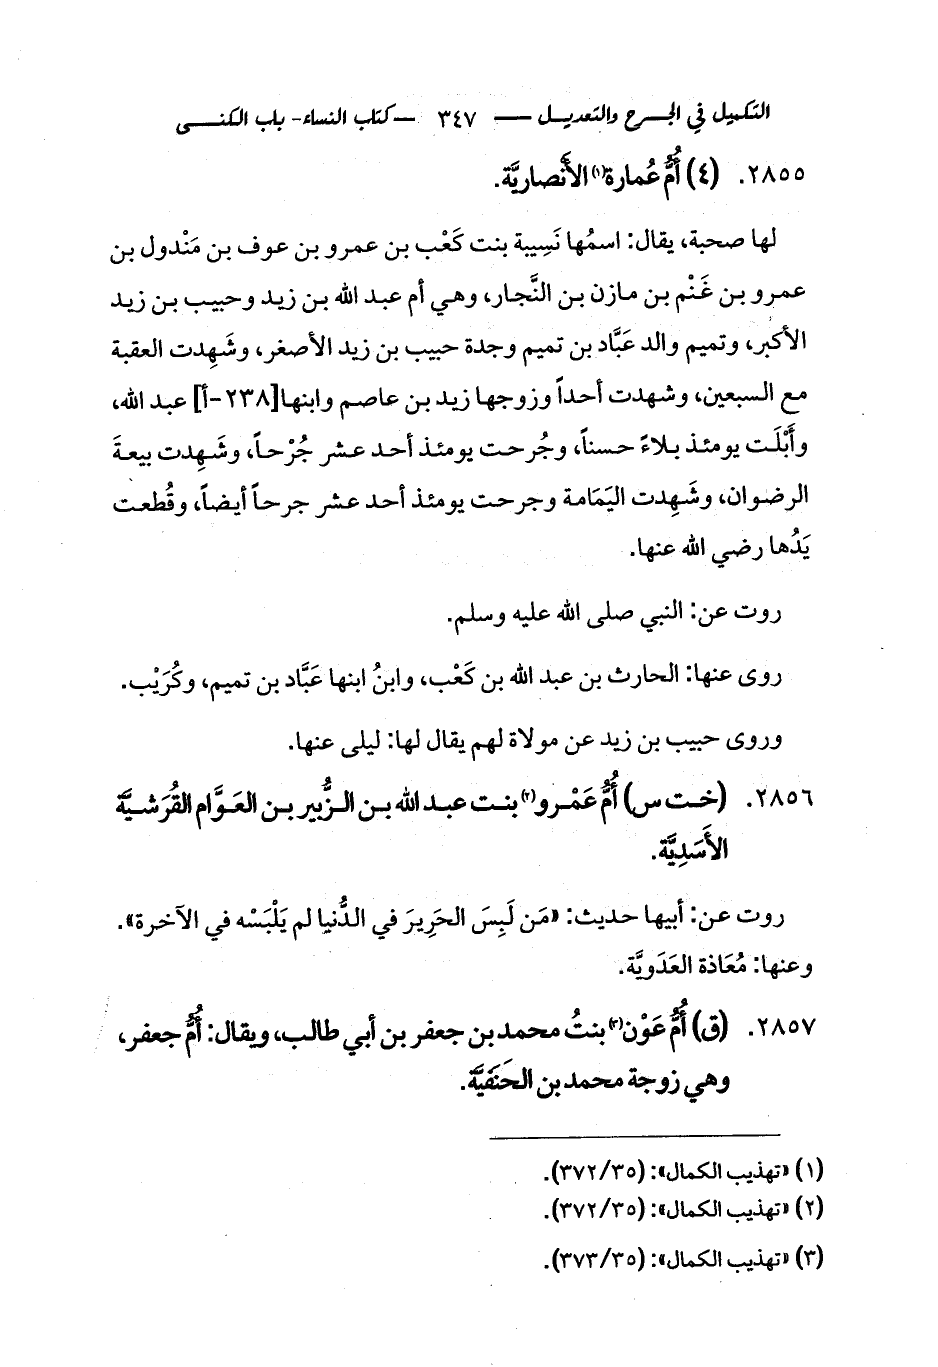 التكميل في الجرح والتعديل — ٣٤٧ — كتاب النساء- باب الكنى
٢٨٥٥. (٤) أُمُّ عُمارة(١) الأنصاريَّة.
لها صحبة، يقال: اسمُها نَسِيبة بنت كَعْب بن عمرو بن عوف بن مَنْدول بن
عمرو بن غَنْم بن مازن بن النَّجار، وهي أم عبد الله بن زيد وحبيب بن زيد
الأكبر، وتميم والد عَبَّاد بن تميم وجدة حبيب بن زيد الأصغر، وشَهِدت العقبة
مع السبعين، وشهدت أحداً وزوجها زيد بن عاصم وابنها[٢٣٨-أ] عبد الله،
وأَبْلَت يومئذ بلاءً حسناً، وجُرحت يومئذ أحد عشر جُرْحاً، وشَهِدت بيعةَ
الرضوان، وشَهِدت اليَمَامة وجرحت يومئذ أحد عشر جرحاً أيضاً، وقُطعت
يَدُها رضي الله عنها.
روت عن: النبي صلى الله عليه وسلم.
روى عنها: الحارث بن عبد الله بن كَعْب، وابنُ ابنها عَبَّاد بن تميم، وكُرَيْب.
وروى حبيب بن زيد عن مولاة لهم يقال لها: ليلى عنها.
٢٨٥٦. (خت س) أُمُّ عَمْرو(٢) بنت عبد الله بن الزُّبير بن العَوَّام القُرَشيَّة
الأَسَدِيَّة.
روت عن: أبيها حديث: «مَن لَبِسَ الحَرِيرَ في الدُّنيا لم يَلْبَسْه في الآخرة».
وعنها: مُعَاذة العَدَويَّة.
٢٨٥٧. (ق) أُمُّ عَوْن(٣) بنتُ محمد بن جعفر بن أبي طالب، ويقال: أُمُّ جعفر،
وهي زوجة محمد بن الحَنَفيَّة.
(١) «تهذيب الكمال»: (٣٧٢/٣٥).
(٢) «تهذيب الكمال»: (٣٧٢/٣٥).
(٣) «تهذيب الكمال»: (٣٧٣/٣٥).